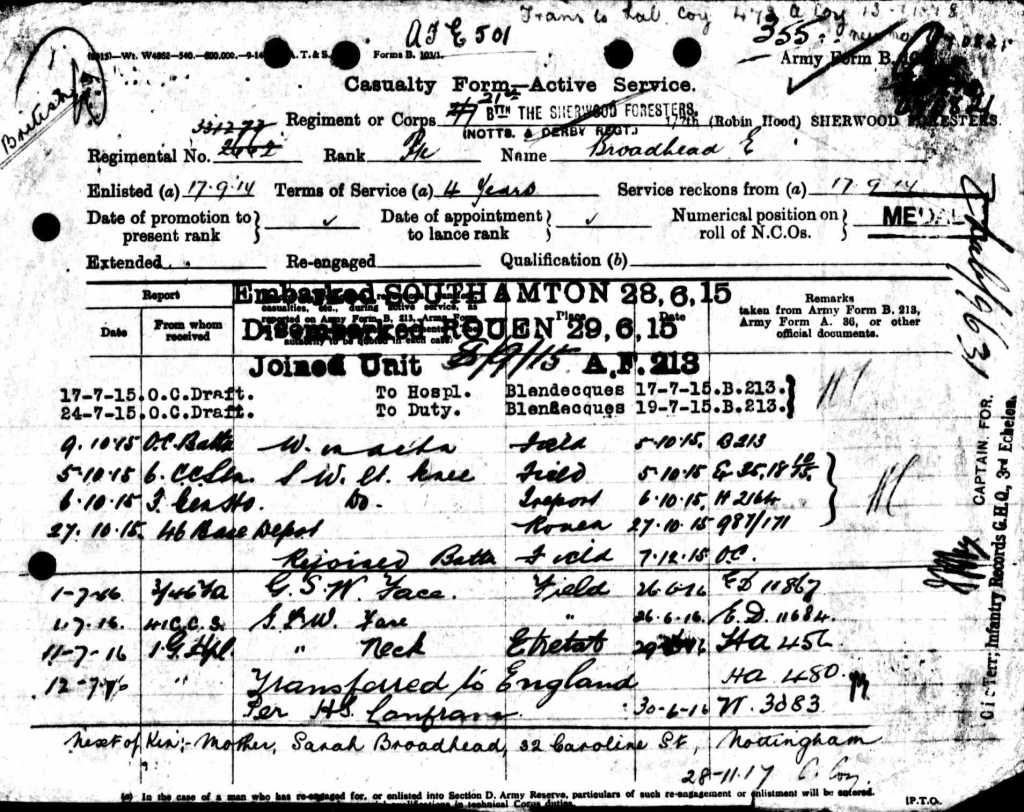 Trans to Lab. Coy 473 A Coy 13-11-18
A F E 501
355.
Forms B. 103/1.
Army Form B.
British
Casualty Form—Active Service.
Regiment or Corps 21st Bttn THE SHERWOOD FORESTERS. (Robin Hood) SHERWOOD FORESTERS.
(NOTTS. & DERBY REGT.)
331277
Regimental No. 2662 Rank Pte Name Broadhead E
Enlisted (a) 17.9.14 Terms of Service (a) 4 Years Service reckons from (a) 17 9 14
Date of promotion to present rank ✓ Date of appointment to lance rank ✓ Numerical position on roll of N.C.Os. MEDAL
Extended Re-engaged Qualification (b)
Report
Date From whom received
Place Date
Remarks
taken from Army Form B. 213, Army Form A. 36, or other official documents.
Embarked SOUTHAMTON 28,6,15
Disembarked ROUEN 29,6,15
Joined Unit 8/9/15 A.F. 213
17-7-15. O.C.Draft. To Hospl. Blendecques 17-7-15. B.213.
24-7-15. O.C.Draft. To Duty. Blendecques 19-7-15. B.213.
9.10.15 O.C. Battn W. in action Field 5.10.15. B213
5.10.15 6. CCStn S W Lt. Knee Field 5.10.15
6.10.15 Gen Ho. Do. Treport 6.10.15. H 2164
27.10.15. 46 Base Depot Rouen 27.10.15 987/171
Rejoined Battn Field 7.12.15 OC.
1-7-16 G. S. W. Face. Field 26-6-16 ED 11867
1.7.16. 41 C.C.S. G.S.W. Face " 26.6.16. E.D. 11684.
11-7-16 1. G. Hpl " Neck Etretat Ha 456
12-7-16 " Transferred to England Ha 480.
Per HS. Lanfranc. 30-6-16 W. 3083
Next of Kin:- Mother, Sarah Broadhead, 32 Caroline St, Nottingham
28-11-17 C. Coy.
(a) In the case of a man who has re-engaged for, or enlisted into Section D. Army Reserve, particulars of such re-engagement or enlistment will be entered.
[P.T.O.
CAPTAIN FOR.
Infantry Records G.H.Q., 3rd Echelon.